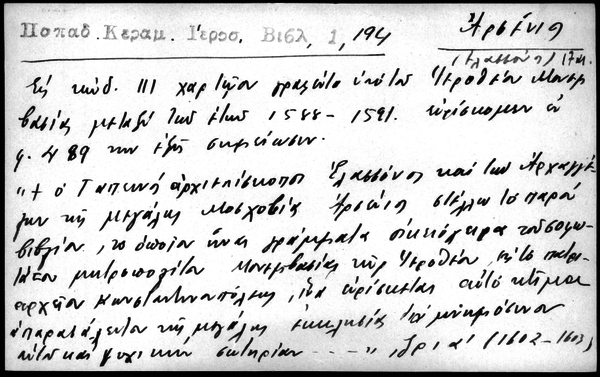 Παπαδ. Κεραμ. Ιεροσ. Βιβλ. 1, 194
Ἀρσένιος
(Ἐλασσόνος) 17 αι.
Εις κώδ. 111 χαρτῷον γραφέντα ὑπὸ τοῦ Ἱεροθέου Μονεμ
βασίας μεταξὺ τῶν ἐτῶν 1588 - 1591. εὑρίσκομεν ἐν
φ. 489 την ἑξῆς σημείωσιν.
"+ ὁ Ταπεινὸς ἀρχιεπίσκοπος Ἐλασσόνος καὶ τῶν Ἀρχαγγέ
λων τῆς μεγάλης Μοσχοβίας Ἀρσένιος στέλλω τὸ παρὸν
βιβλίον, τὸ ὁποῖον ἦναι γράμματα οἰκειόχειρα τοῦ σοφω
τάτου μητροπολίτου Μονεμβασίας κὺρ Ἱεροθέου, εἰς τὸ πατρι
αρχεῖον Κωνσταντινουπόλεως, ἵνα εὑρίσκεται αὐτὸ κτῆμα
ἀπαρασάλευτον τῆς μεγάλης ἐκκλησίας διὰ μνημόσυνον
αὐτοῦ καὶ ψυχικὴν σωτηρίαν - - - - " ͵ζρια' (1602 - 1603)